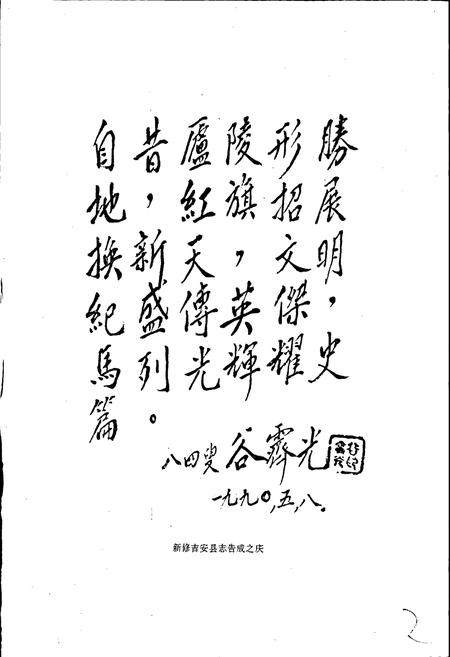 自昔廬陵形勝
地，紅旗招展
換新天，文明
紀盛傳英傑，
馬列光輝耀史
篇。
八四叟 谷霽光
一九九〇,五,八。
新修吉安县志告成之庆
2